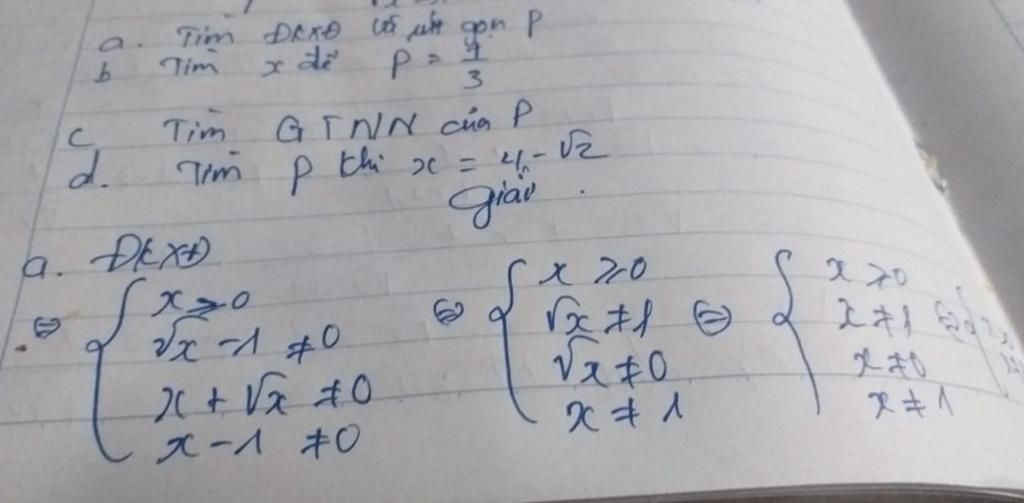 a. Tìm ĐKXĐ và rút gọn P
b Tìm x để P = 7/3
c Tìm GTNN của P
d. Tìm P khi x = 4 - √2
Giải
a. ĐKXĐ
⇔ { x ≥ 0 ⇔ { x ≥ 0 ⇔ { x ≥ 0
√x - 1 ≠ 0 √x ≠ 1 x ≠ 1 ⇔ {
x + √x ≠ 0 √x ≠ 0 x ≠ 0
x - 1 ≠ 0 x ≠ 1 x ≠ 1